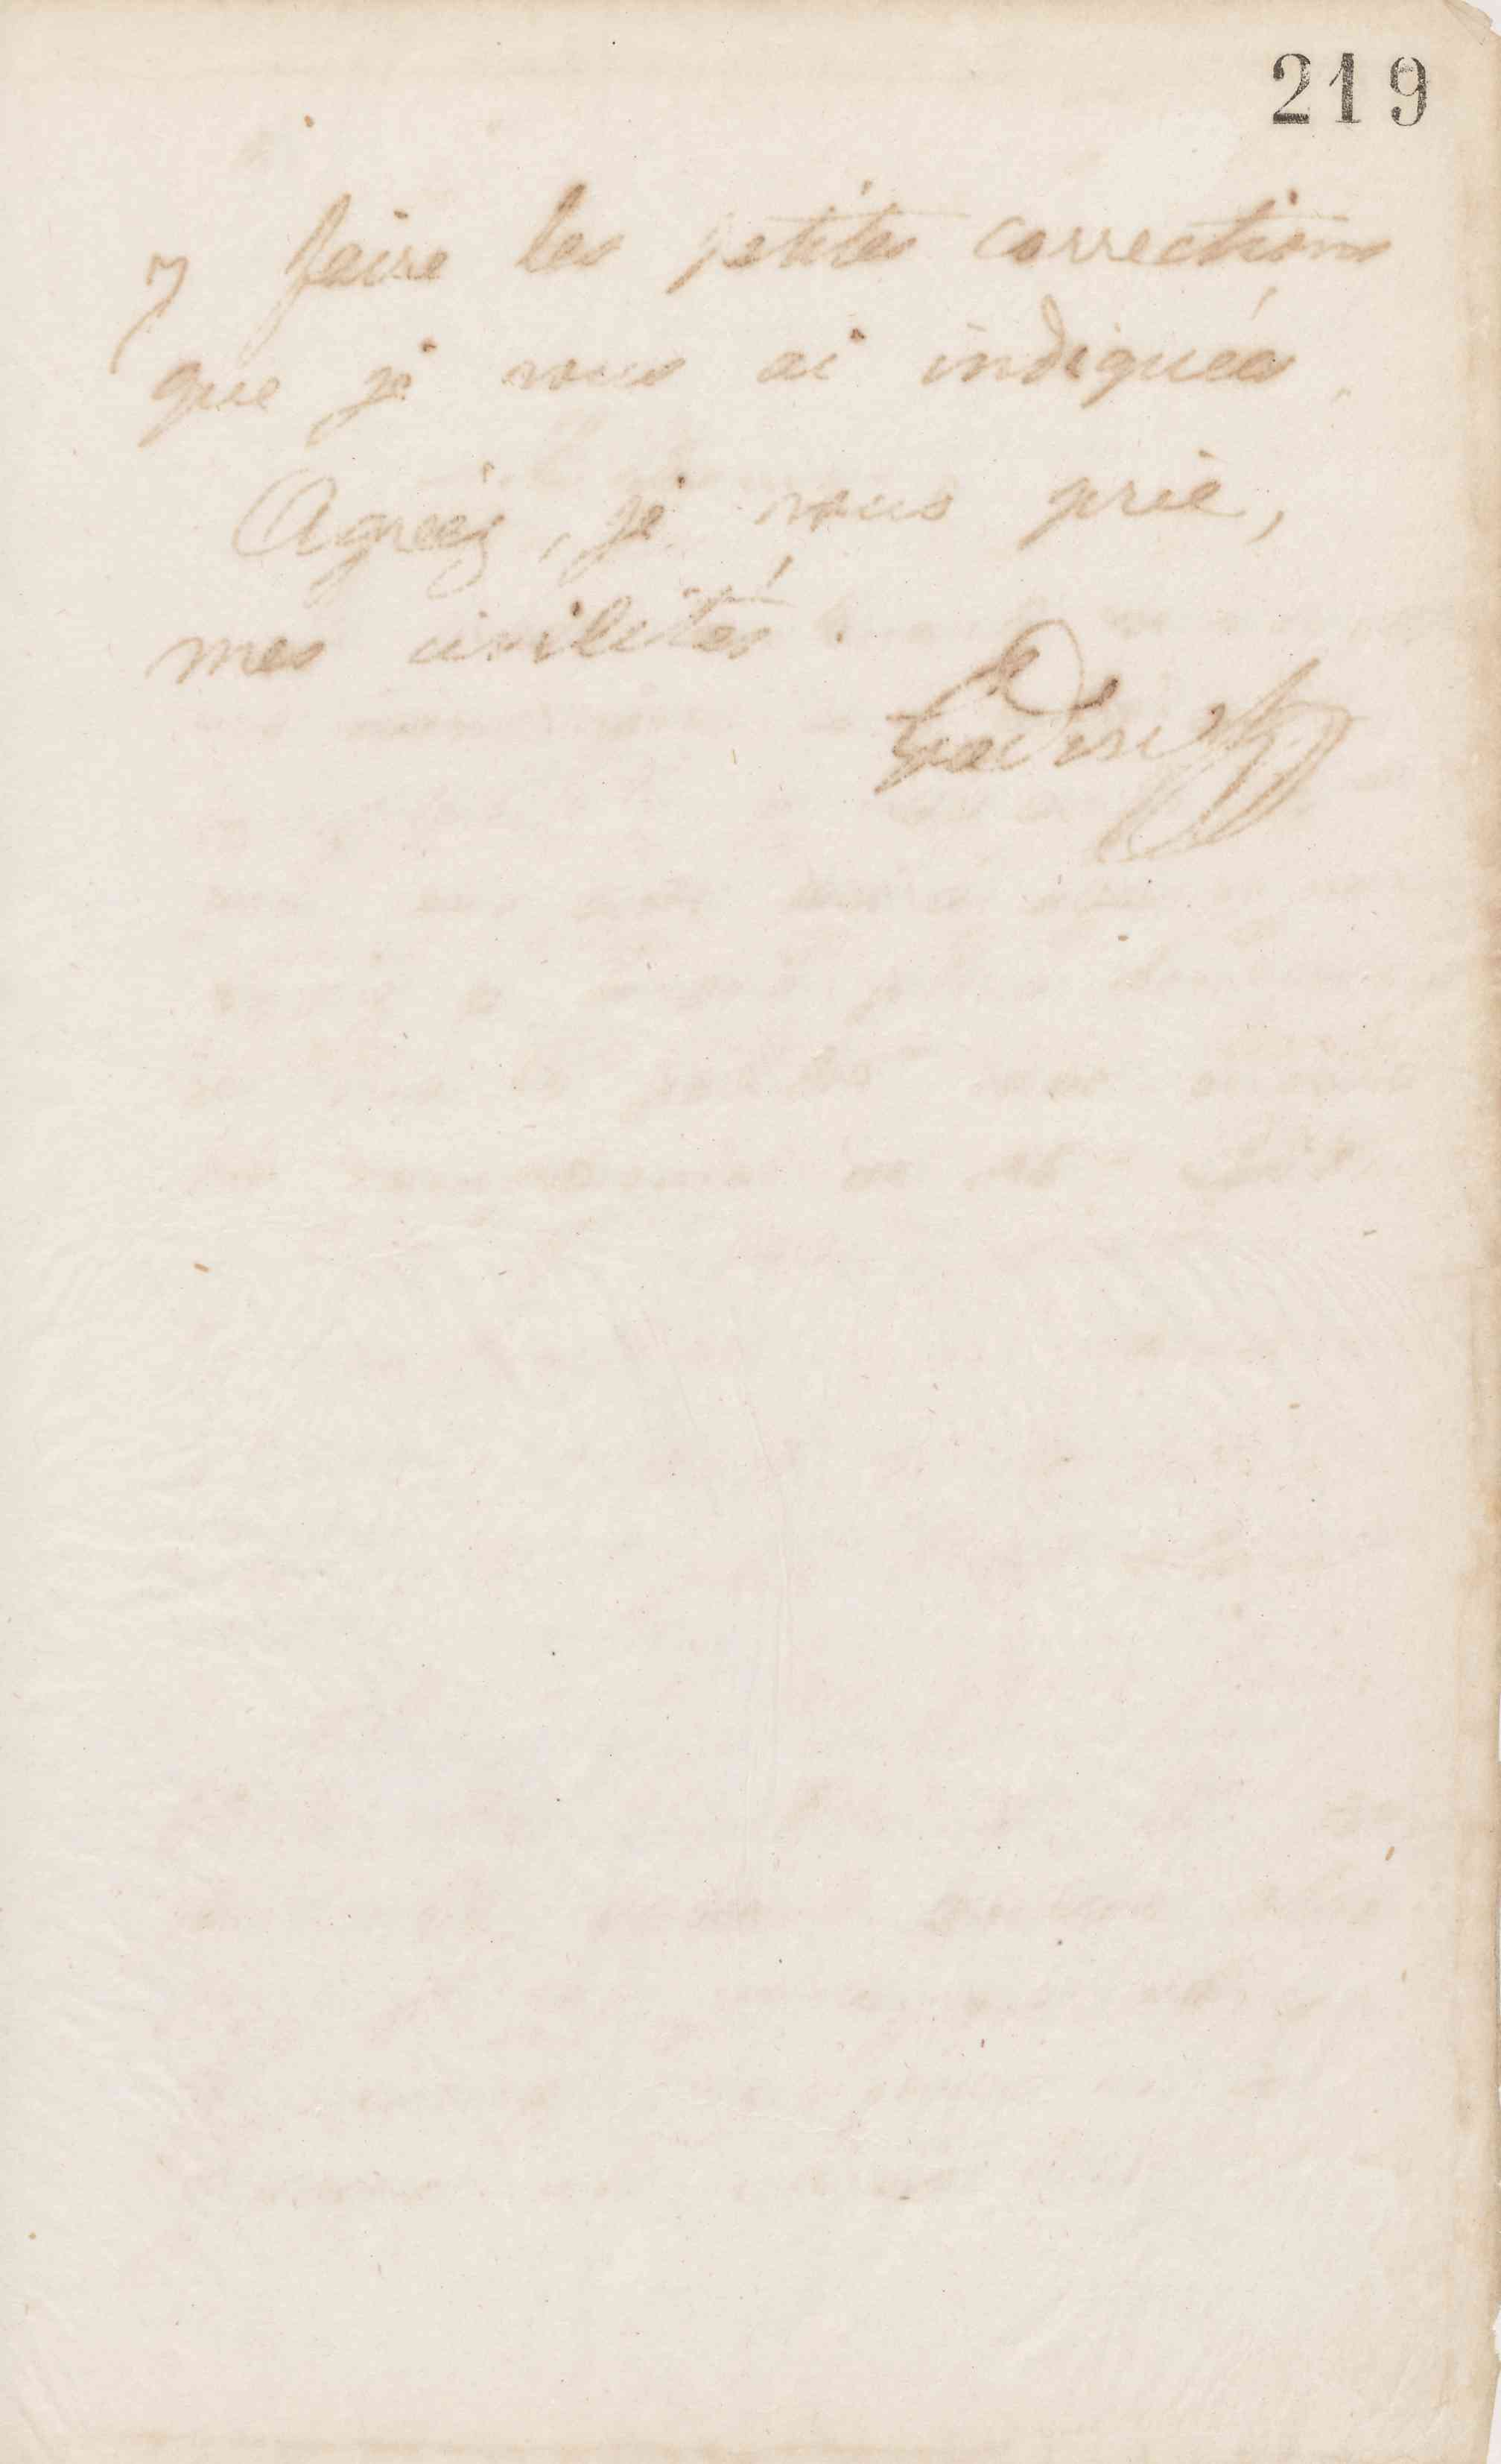 219
y faire les petites corrections
que je vous ai indiquées.
Agréez, je vous prie,
mes civilités.
Godin